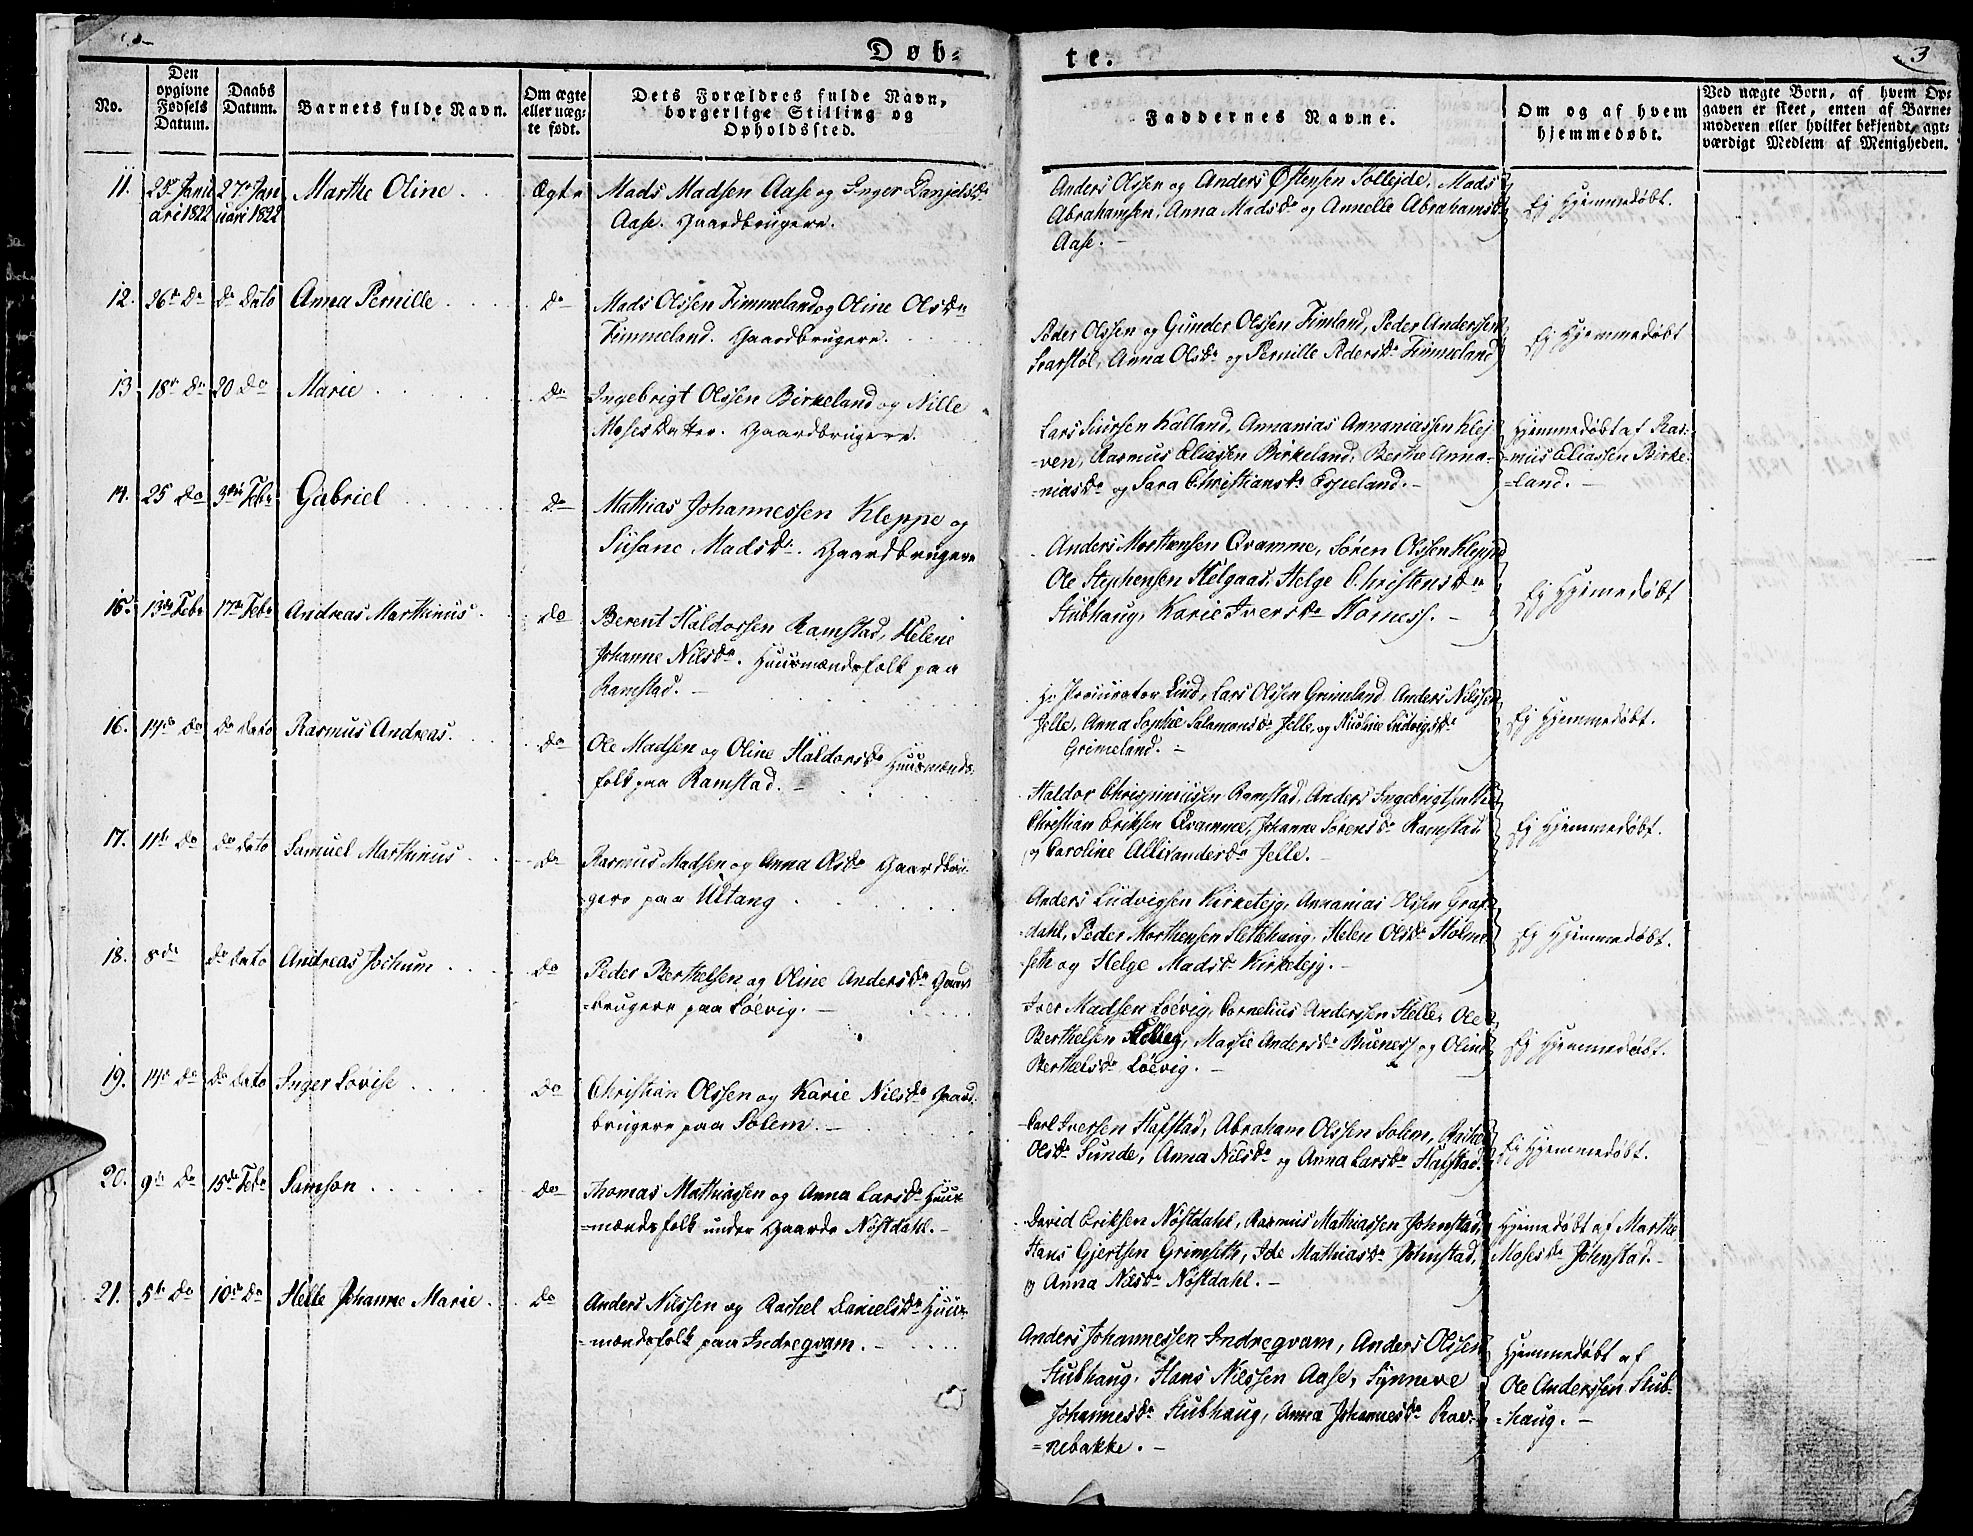 Døb-
te.
3
No.
Den opgivne Fødsels Datum.
Daabs Datum.
Barnets fulde Navn.
Om ægte eller uæg-te født.
Dets Forældres fulde Navn, borgerlige Stilling og Opholdssted.
Faddernes Navne.
Om og af hvem hjemmedøbt.
Ved uægte Børn, af hvem Op-gaven er skeet, enten af Barne-moderen eller hvilket bekjendt, agt-værdigt Medlem af Menigheden.
11. 25de Janu 27de Jan Marthe Oline Ægte Mads Madsen Aase og Inger Danjelsdr
ari 1822 uari 1822 Aase. Gaardbrugere.
Anders Olsen og Anders Østensen Sollejde, Mads
Abrahamsen, Anna Madsdr og Annelle Abrahamsdr
Aase. –
Ej Hjemmedøbt.
12. 26de Do Do Dato Anna Pernille Do Mads Olssen Timmeland og Oline Olsdr
Timmeland. Gaardbrugere.
Peder Olssen og Gunder Olssen Timland, Peder Anderssen
Svarstøl, Anna Olsdr og Pernille Pedersdr Timmeland
Ej Hjemmedøbt
13 18de Do 20 Do Marie Do Ingebrigt Olssen Birkeland og Nille
Mosesdatter. Gaardbrugere.
Lars Siursen Kalland, Annanias Annaniassen Klej-
=ven, Rasmus Eliassen Birkeland, Berthe Anna-
=niasdr og Sara Christiansdr Espeland. –
Hjemmedøbt af Ras-
=mus Eliassen Birke-
=land. –
14. 25 Do 3die Febr Gabriel Do Mathias Johannessen Kleppe og
Susane Madsdr. Gaardbrugere
Anders Morthensen Qvamme, Søren Olssen Kleppe
Ole Stephensen Helgaas, Helge Christensdr
Stubhaug, Karie Iversdr Horness. –
Ej Hjemmedøbt
15. 13de Febr 17de Febr Andreas Marthinus Do Berent Haldorssen Ramstad, Helene
Johanne Nilsdr. Huusmændsfolk paa
Ramstad. –
Hr Procurator Lind, Lars Olssen Grimeland Anders Nilssen
Jelle, Anna Sophie Salamonsdr Jelle, og Nicoline Ludvigsdr
Grimeland. –
Ej Hjemmedøbt.
16. 14de Do Do Dato Rasmus Andreas. Do Ole Madsen og Oline Haldorsdr Huusmænds
folk paa Ramstad. –
Haldor Chrispinussen Ramstad, Anders Ingebrigtsen
Christian Eriksen Qvamme, Johanne Sørensdr Ramstad
og Caroline Allexandersdr Jelle. –
Ej Hjemmedøbt.
17. 11te Do Do Dato Samuel Marthinus Do Rasmus Madsen og Anna Olsdr Gaardbru-
gere paa Utvang
Anders Ludvigsen Kirketejg, Annanias Olssen Graf-
dahl, Peder Morthensen Slettehaug, Helen Olsdr Holme-
seth og Helge Madsdr Kirketejg. –
Ej Hjemmedøbt.
18. 8de Do Dato Andreas Jochum Do Peder Berthelsen og Oline Andersdr Gaard
=brugere paa Løevig. –
Iver Madsen Løevig, Cornelius Anderssen Helle, Ole
Berthelsen, Massie Andersdr Rueness og Oline
Berthelsdr Løevig. –
Ej Hjemmedøbt.
19. 14de Do Do Dato Inger Lovise Do Christian Olssen og Karie Nilsdr Gaard-
brugere paa Solem. –
Carl Iverssen Hafstad, Abraham Olssen Solem, Rachel
Olsdr Sunde, Anna Nilsdr og Anna Larsdr Hafstad.
Ej Hjemmedøbt.
20. 9de Do 15de Febr Samson Do Thomas Mathiassen og Anna Larsdr Huus-
=mændsfolk under Gaarde Nøstdahl. –
David Eriksen Nøstdahl, Rasmus Mathiassen Johnstad,
Hans Gjertsen Grimseth, Ide Mathiasdr Johnstad,
og Anna Nilsdr Nøstdahl. –
Hjemmedøbt af Marthe
Mosesdr Johnstad. –
21. 5te Do 10de Do Helle Johanne Marie Do Anders Nilssen og Rachel Danielsdr Huus-
=mændsfolk paa Indreqvam. –
Anders Johannessen Indreqvam, Anders Olssen
Stubhaug, Hans Nilssen Aase, Synneve
Johannesdr Stubhaug, Anna Johannesdr Rav-
=nebakke. –
Hjemmedøbt af
Ole Anderssen Stub-
=haug. –